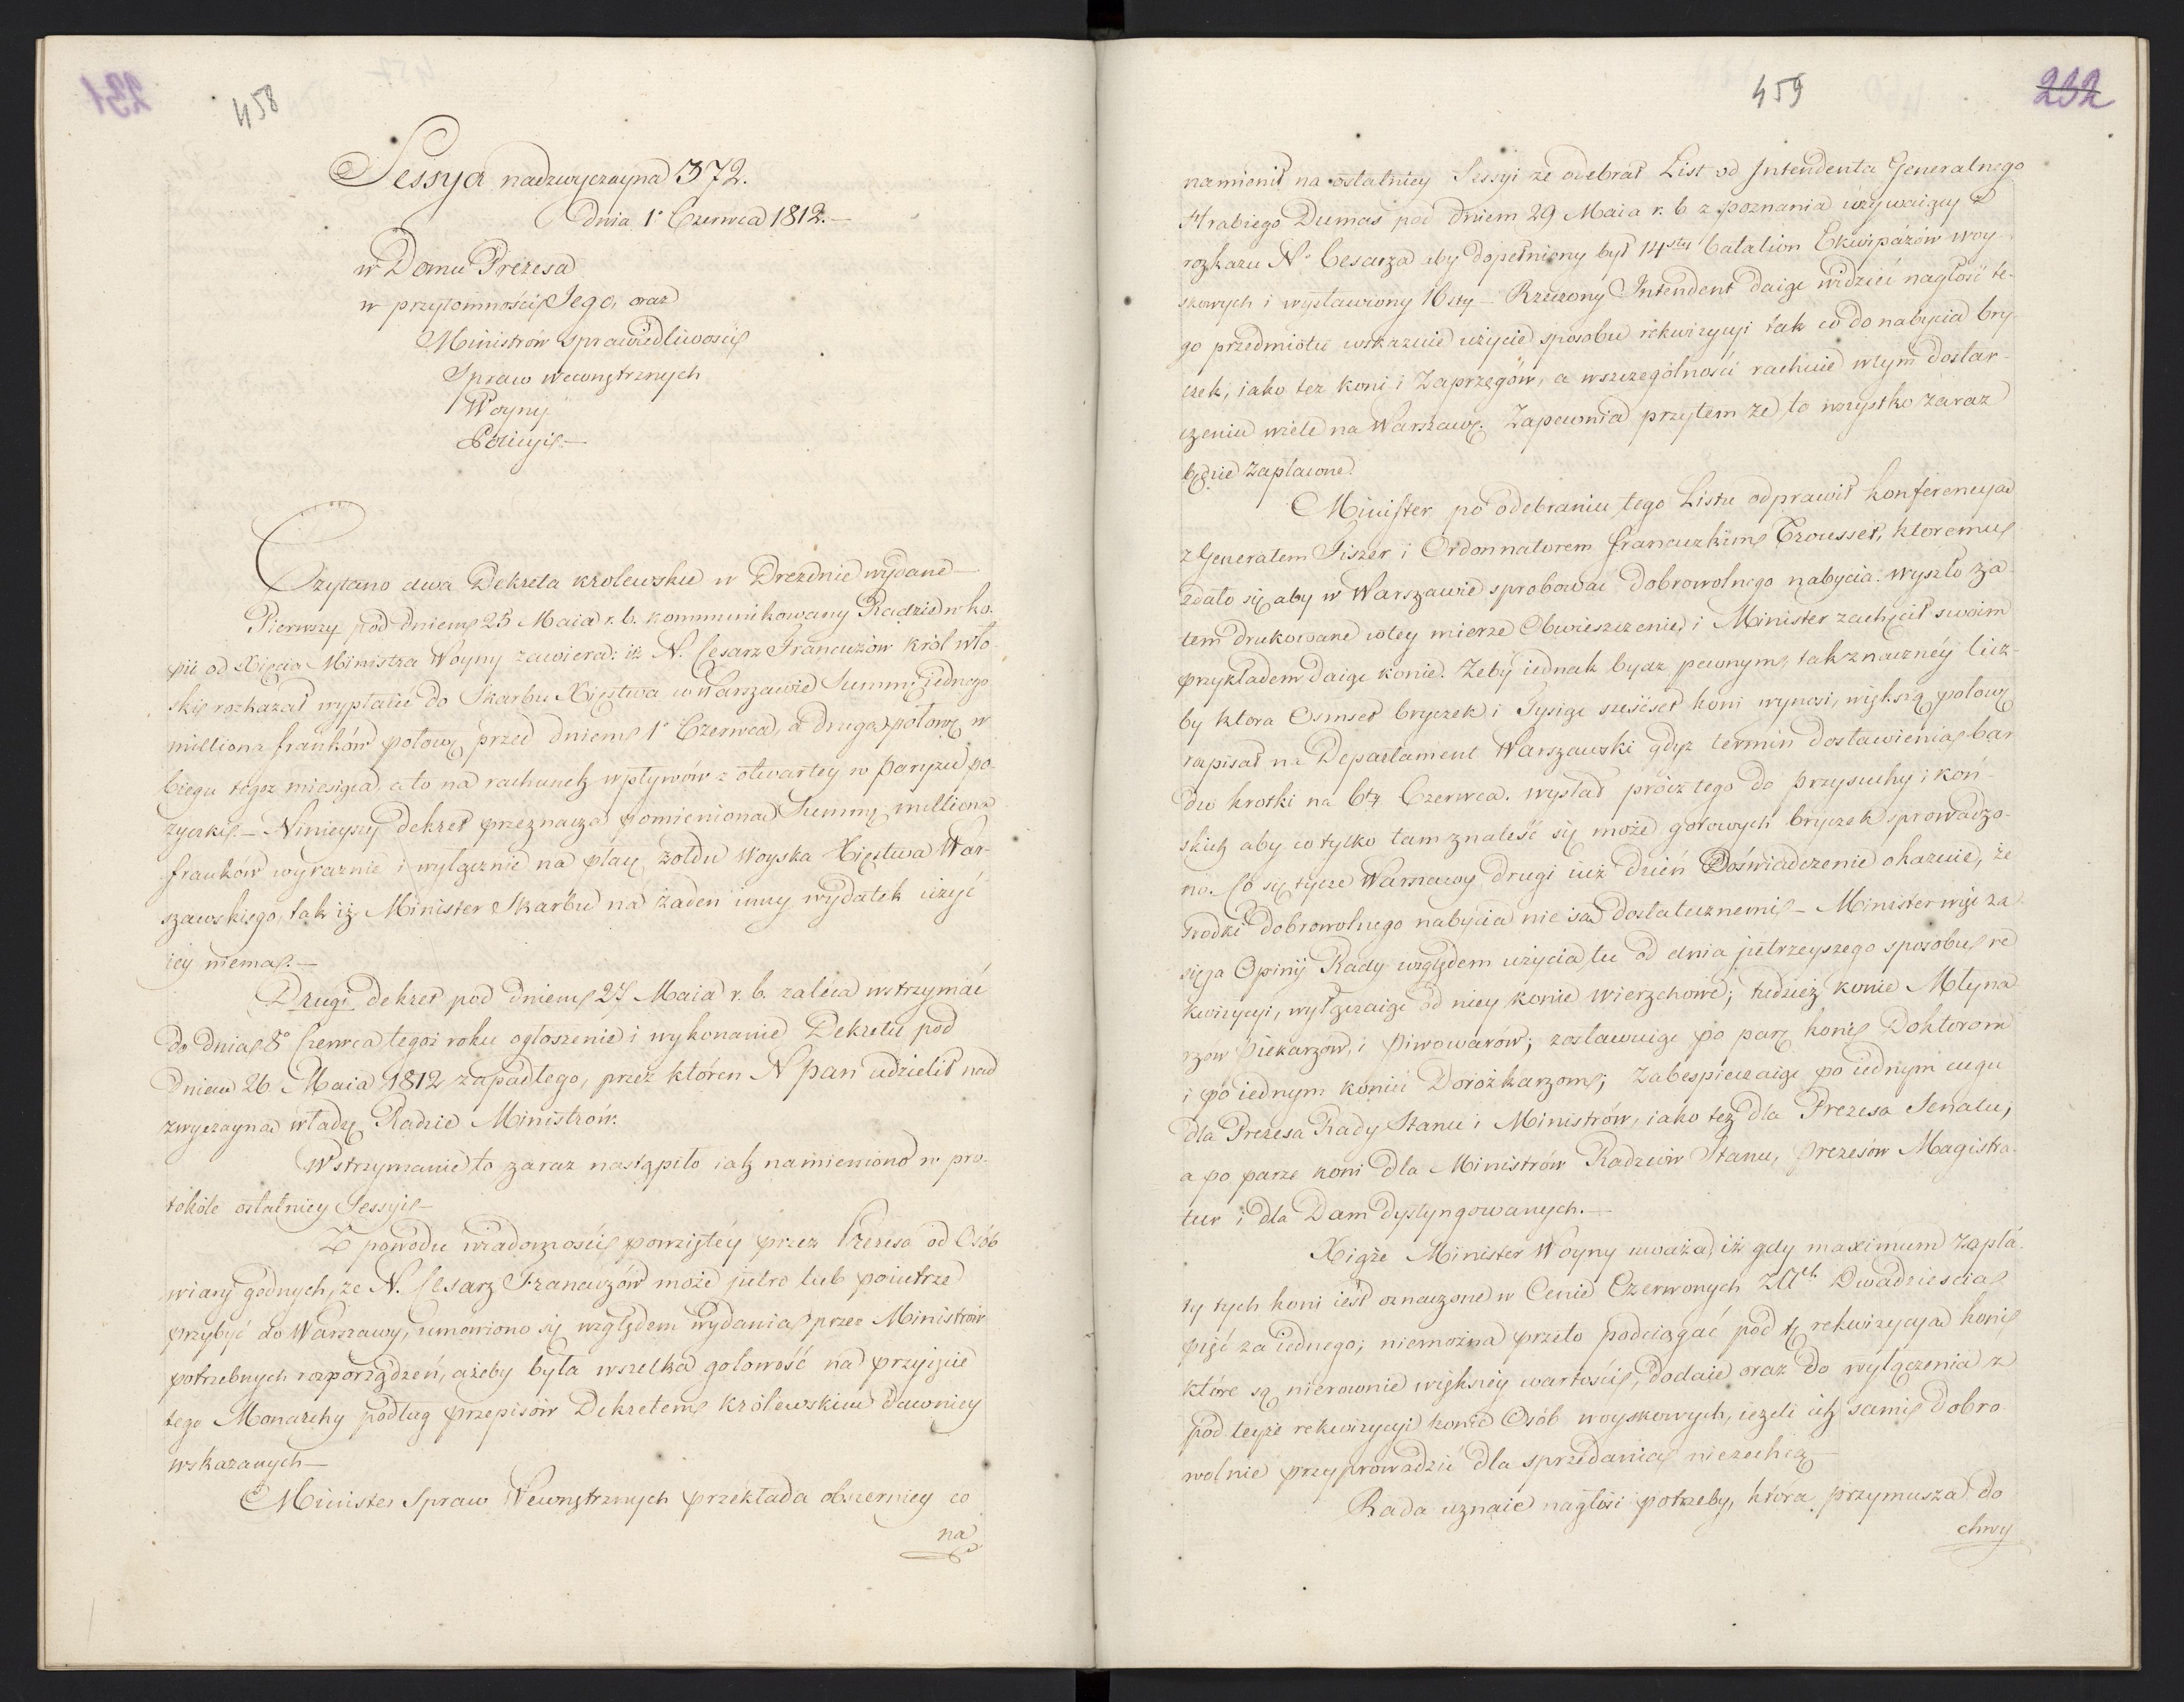 231
458
Sessya nadzwyczayna 372.
Dnia 1° Czerwca 1812.—
w Domu Prezesa
w przytomności Jego, oraz
Ministrów Sprawiedliwości
Spraw Wewnętrznych
Woyny
Policyi.—
Czytano dwa Dekreta krolewskie w Dreznie wydane
Pierwszy pod dniem 25 Maia r. b. kommunikowany Radzie w ko-
pii od Xięcia Ministra Woyny zawiera: iż N. Cesarz Francuzów Król wło-
ski rozkazał wypłacić do Skarbu Xięstwa w Warszawie Summę jednego
milliona franków połowę przed dniem 1° Czerwca, a drugą połowę w
biegu tegoż miesiąca, a to na rachunek wpływów z otwartey w Paryżu po-
życzki.— Ninieyszy dekret przeznacza pomienioną Summę milliona
franków wyraznie i wyłącznie na płacę żołdu Woyska Xięstwa War-
szawskiego, tak iż Minister Skarbu na żaden inny wydatek użyć
iey niema.—
Drugi dekret pod dniem 27 Maia r. b. zaleca wstrzymać
do dnia 8° Czerwca tegoż roku ogłoszenie i wykonanie Dekretu pod
dniem 26 Maia 1812 zapadłego, przez któren N Pan udzielił nad
zwyczayną władzę Radzie Ministrów.
Wstrzymanie to zaraz nastąpiło iak namieniono w pro-
tokóle ostatniey Sessyi—
Z powodu wiadomości powziętéy przez Prezesa od Osób
wiary godnych, że N. Cesarz Francuzów może jutro lub poiutrze
przybyć do Warszawy, umowiono się względem wydania przez Ministrów
potrzebnych rozporządzeń, ażeby była wszelka gotowość na przyięcie
tego Monarchy podług przepisów Dekretem królewskim dawniey
wskazanych—
Minister Spraw Wewnętrznych przekłada obszerniey co
na
459
232
namienił na ostatniey Sessyi że odebrał List od Intendenta Generalnego
Hrabiego Dumas pod dniem 29 Maia r. b z Poznania wzywaiący z
rozkazu N° Cesarza aby dopełniony był 14sty batalion Ekwipażów woy-
skowych i wystawiony 16sty— Rzeczony Intendent daiąc widzieć nagłość te-
go przedmiotu wskazuie użycie sposobu rekwizycyi tak co do nabycia bry-
czek, iako też koni i Zaprzęgów, a wszczególności rachuie wtym dostar-
czeniu wiele na Warszawę. Zapewnia przytem że to wszystko zaraz
będzie zapłacone.
Minister po odebraniu tego Listu odprawił konferencyą
z Generałem Fiszer i Ordonnatorem francuzkim Trousset, ktoremu
zdało się aby w Warszawie sprobować dobrowolnego nabycia. wyszło za-
tem drukowane wtey mierze Obwieszczenie, i Minister zachęcił swoim
przykładem daiąc konie. Żeby iednak bydz pewnym, tak znaczney licz-
by ktora Osmset bryczek i Tysiąc sześćset koni wynosi, większą połowę
rapisał na Departament Warszawski gdyż termin dostawienia bar
dzo krotki na 6ty Czerwca. wysłał prócz tego do Przysuchy i Koń-
skich aby co tylko tam znaleść się może gotowych bryczek sprowadzo-
no. Co się tycze Warszawy drugi iuż dzień Doświadczenie okazuie, że
srodki dobrowolnego nabycia nie są dostatecznemi— Minister więc za-
sięga Opinij Rady względem użycia tu od dnia jutrzeyszego sposobu re
kwizycyi, wyłączaiąc od niey konie wierzchowe; tudzież konie Młyna
rzów Piekarzów, i Piwowarów; zostawuiąc po parę koni Doktorom
i po iednym koniu Dorożkarzom; Zabespieczaiąc po iednym cugu
dla Prezesa Rady Stanu i Ministrów, iako też dla Prezesa Senatu;
a po parze koni dla Ministrów Radzców Stanu, Prezesów Magistra-
tur i dla Dam dystyngowanych.—
Xiąże Minister Woyny uważa, iż gdy maximum zapła-
ty tych koni iest oznaczone w Cenie Czerwonych Złch Dwadziescia
pięć za iednego; niemożna przeto podciągać pod tę rekwizycyą koni
które są nierownie większey wartości, dodaie oraz do wyłączenia z
pod teyże rekwizycyi konie Osób woyskowych, ieżeli ich sami dobro-
wolnie przyprowadzić dla sprzedania niezechcą—
Rada uznaie nagłość potrzeby, ktora przymusza do
chwy